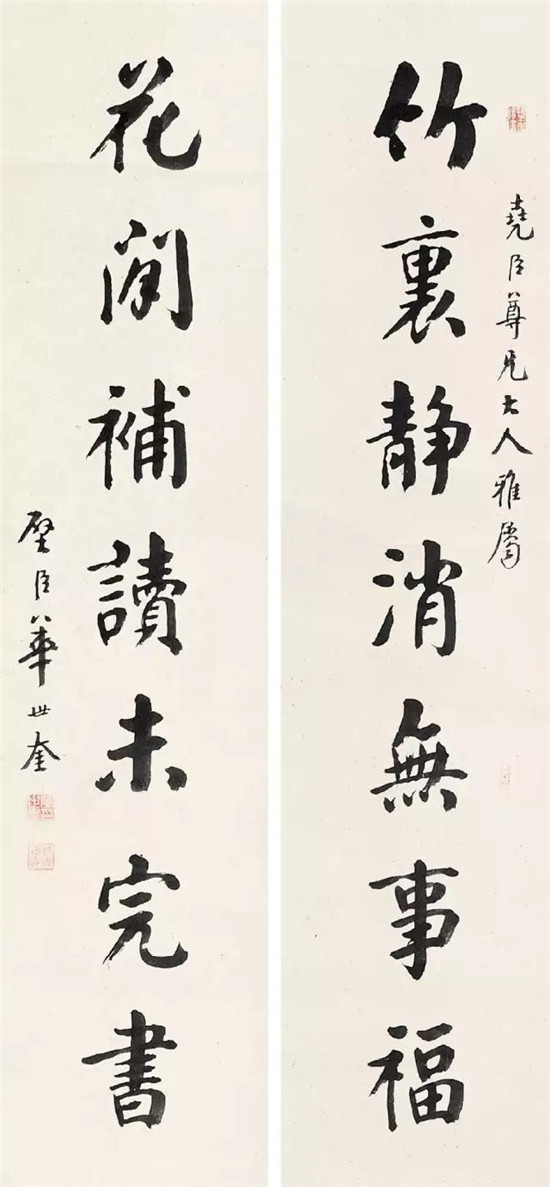 堯臣尊兄大人雅屬
竹裏静消無事福
花間補讀未完書
璧臣華世奎